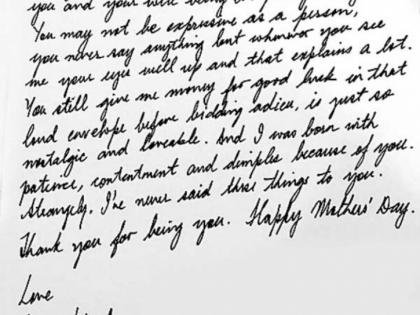 you and your
You may not be expressive as a person,
you never say anything but whenever you see
me your eyes well up and that explains a lot.
You still give me money for good luck in that
envelope before bidding adieu, is just so
nostalgic and loveable. And I was born with
patience, contentment and dimples because of you.
Strangely, I've never said these things to you.
Thank you for being you. Happy Mothers' Day.
Love